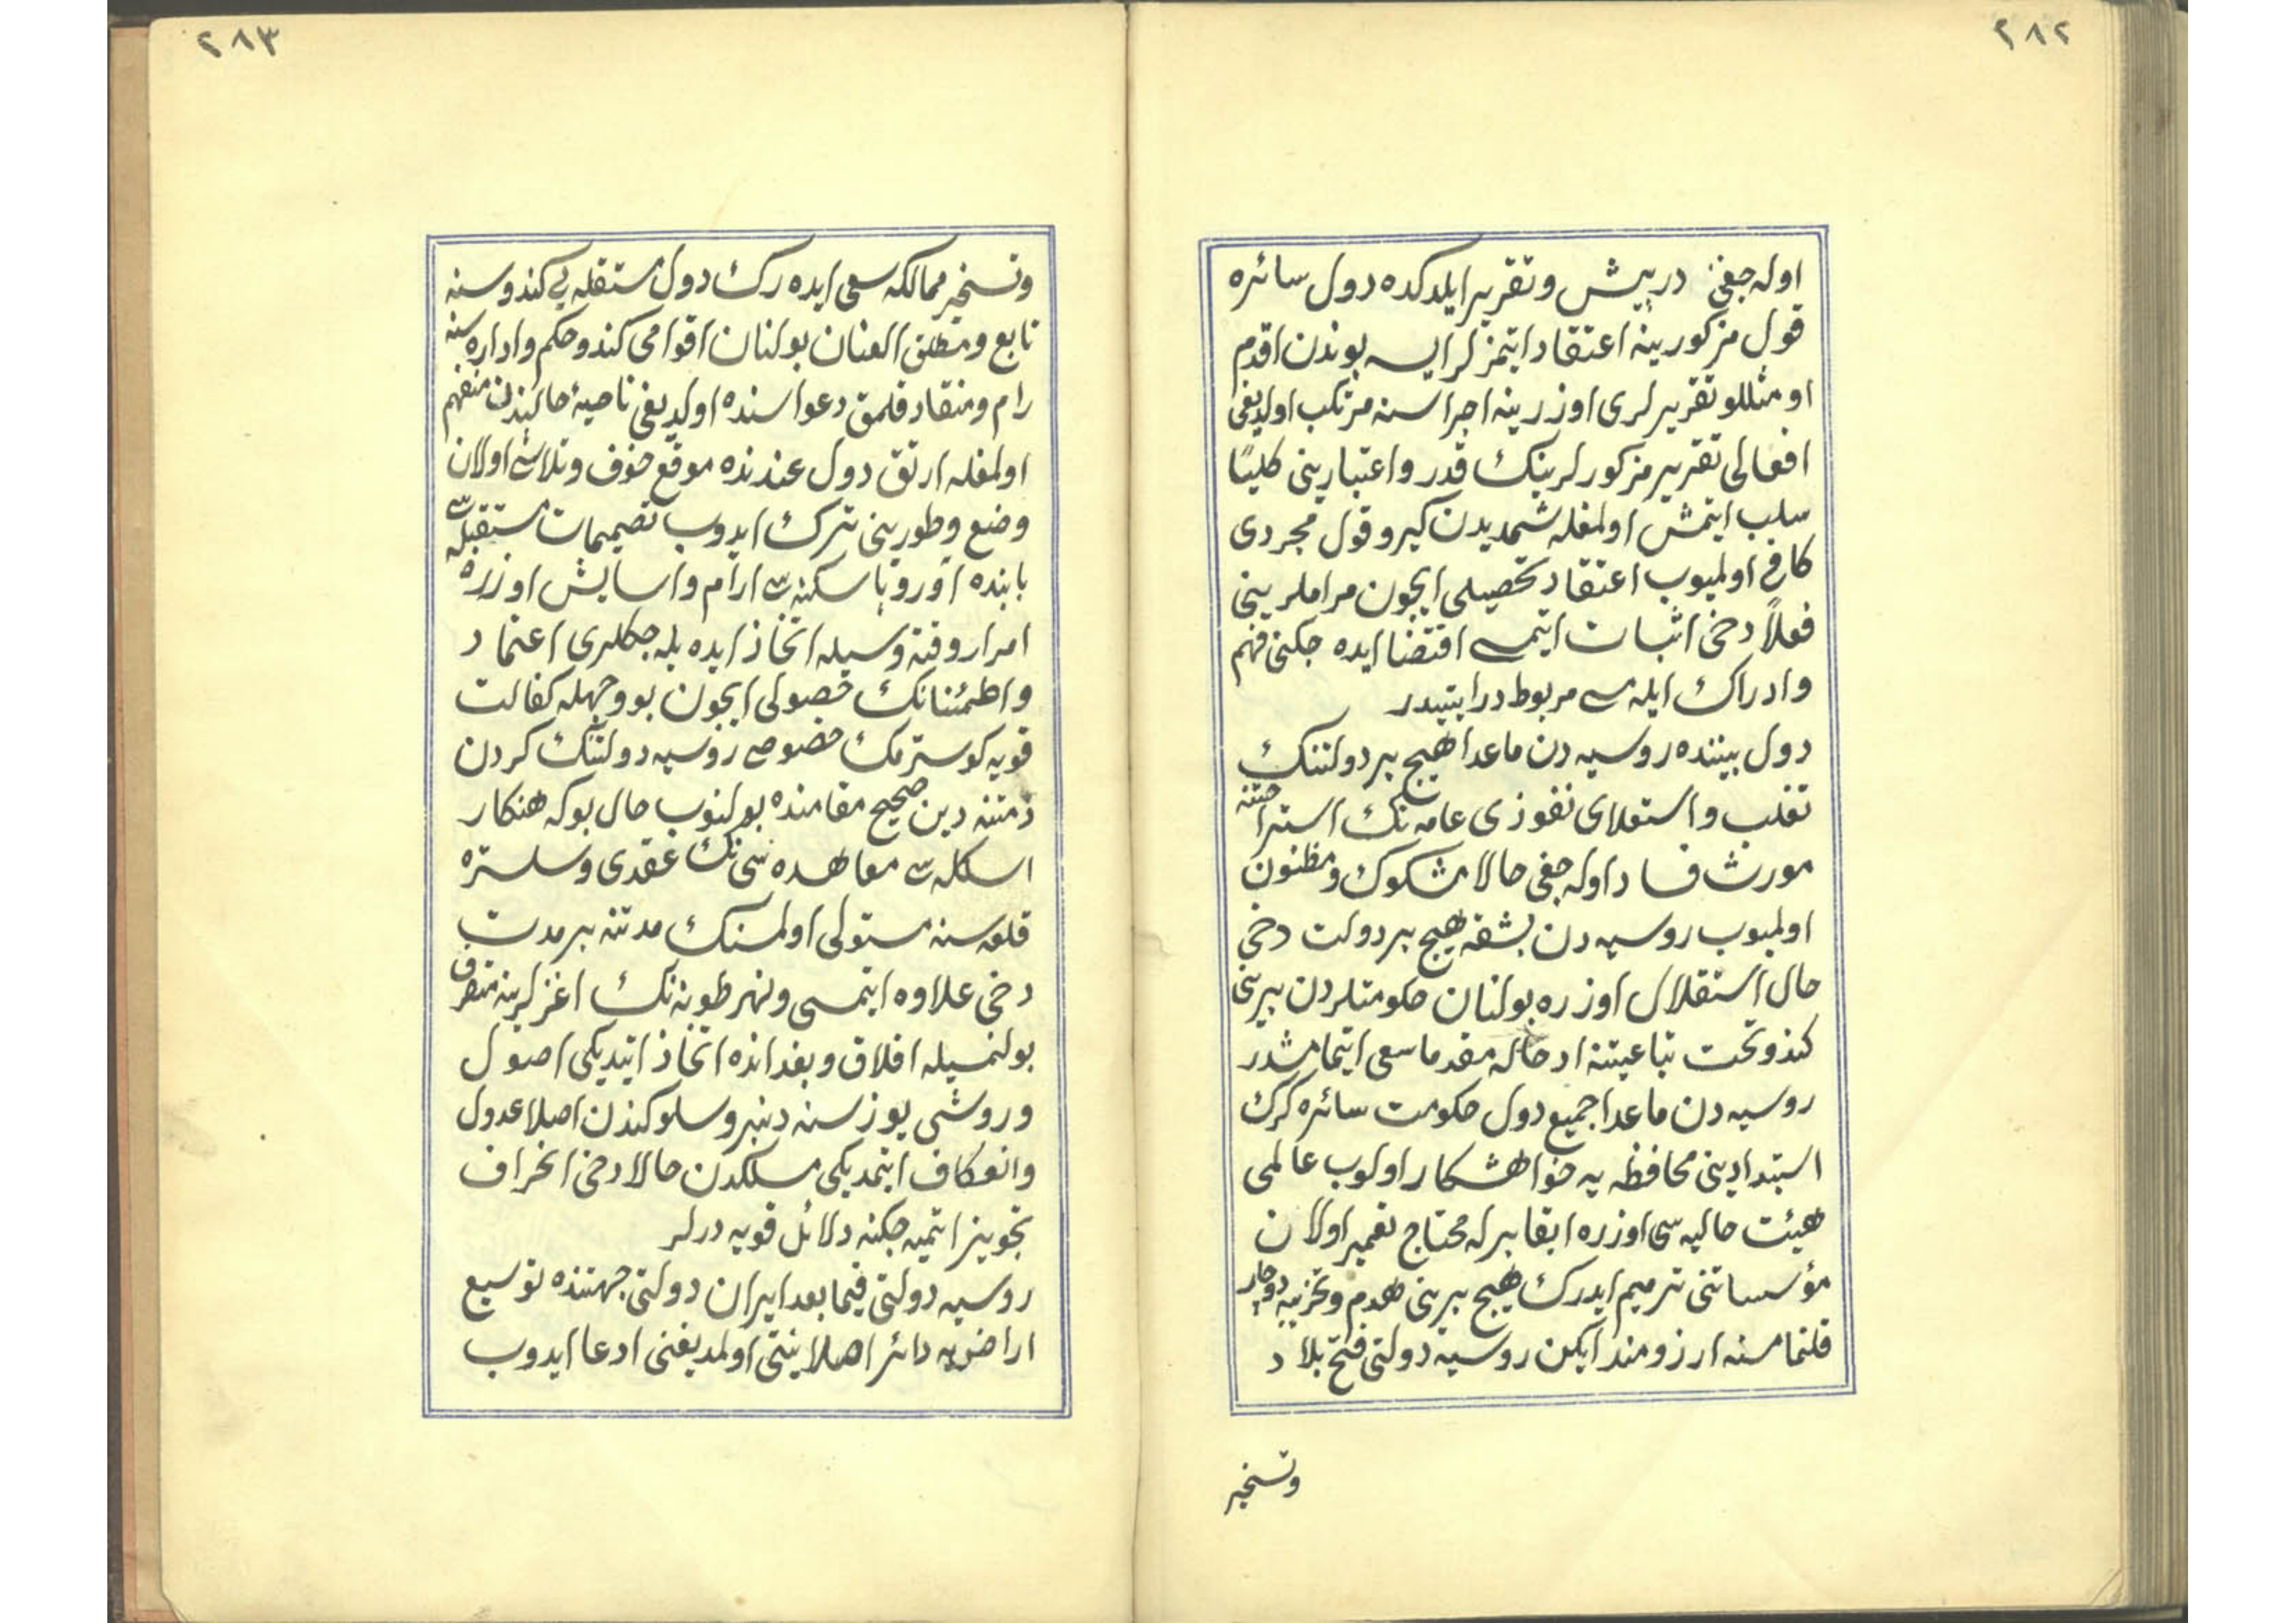 ٢٨٢
اوله جغنی درپیش وتقریر ایلدکده دول سائره
قول مزکورینه اعتقاد ایتمزلر ایسه بوندن اقدم
او مثللو تقریرلری اوزرینه اجراسنه مرتکب اولدیغی
افعالی تقریر مزکورلرینک قدر واعتبارینی کلیًا
سلب ایتمش اولمغله شمدیدن کیرو قول مجردی
کافی اولمیوب اعتقاد تحصیلی ایچون مراملرینی
فعلاً دخی اثبات ایتمسی اقتضا ایده جکنی فهم
وادراک ایله سی مربوط درایتیدر
دول بیننده روسیه دن ماعدا هیچ بر دولتنک
تغلب واستعلای نفوذی عامه نک استراحتنه
مورث فساد اوله جغی حالا مشکوک ومظنون
اولمیوب روسیه دن بشقه هیچ بر دولت دخی
حال استقلال اوزره بولنان حکومتلردن برینی
کندو تحت تباعیتنه ادخاله مقدما سعی ایتمامشدر
روسیه دن ماعدا جمیع دول حکومت سائره کرک
استبدادینی محافظه یه خواهشکار اولوب عالمی
هیئت حالیه سی اوزره ابقا برله محتاج تعمیر اولان
مؤسساتنی ترمیم ایدرک هیچ برینی هدم وتخریبه دوچار
قلنمامسنه ارزومند ایکن روسیه دولتی فتح بلاد
وتسخیر
٢٨٣
وتسخیر ممالکه سعی ایده رک دول مستقله یی کندوسنه
تابع ومطلق العنان بولنان اقوامی کندو حکم واداره سنه
رام ومنقاد قلمق دعواسنده اولدیغی ناصیۀ حالندن منفهم
اولمغله ارتق دول عندنده موقع خوف وتلاش اولان
وضع وطورینی ترک ایدوب تصمیمات مستقبله سی
بابنده اوروپا سکنه سی ارام واسایش اوزره
امرار وقته وسیله اتخاذ ایده بله جکلری اعتماد
واطمئنانک حصولی ایچون بو وجهله کفالت
قویه کوسترمک خصوصی روسیه دولتنک کردن
ذمتنه دین صحیح مقامنده بولنوب حال بوکه هنکار
اسکله سی معاهده سی نک عقدی وسلستره
قلعه سنه مستولی اولمسنک مدتنه بر مدت
دخی علاوه ایتمسی ونهر طونه نک اغزلرینه متصرف
بولنمسیله افلاق وبغدانده اتخاذ ایتدیکی اصول
وروشی یوز سنه دنبرو سلوکندن اصلا عدول
وانعکاف ایتمدیکی مسلکدن حالا دخی انحراف
تجویز ایتمیه جکنه دلائل قویه درلر
روسیه دولتی فیما بعد ایران دولتی جهتنده توسیع
اراضویه دائر اصلا نیتی اولمدیغنی ادعا ایدوب